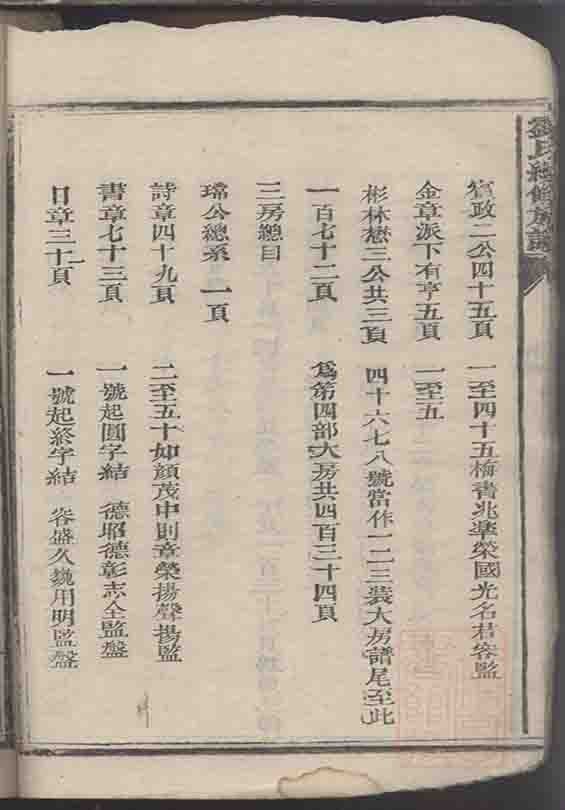 劉氏續修族譜
實政二公四十五頁 一至四十五梅書兆華榮國光名君容監
金章派下有亨五頁 一至五
彬林懋三公共三頁 四十六七八號當作一二三裝大房譜尾至此
一百七十二頁 爲第四部大房共四百三十四頁
三房總目
璫公總系一頁
詩章四十九頁 二至五十如顔茂中則章榮揚聲揚監
書章七十三頁 一號起圓字結 德昭德彰志全監盤
日章三十頁 一號起終字結 容盛久巍用明監盤